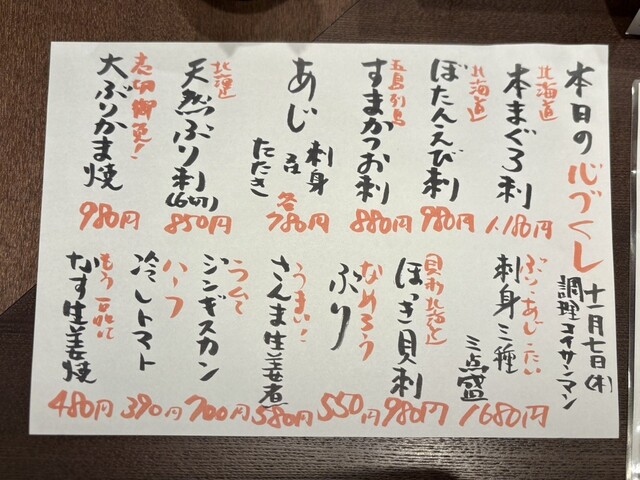 本日の心づくし
十一月七日(木)
調理 コイサンマン
北海道
本まぐろ刺
1,180円
北海道
ぼたんえび刺
980円
五島列島
すまかつお刺
880円
あじ
刺身
又は
たたき
各
780円
北海道
天然ぶり刺
(6切)
850円
売切御免!
大ぶりかま焼
980円
ぶり・あじ・たい
刺身三種
三点盛
1680円
貝形北海道
ほっき貝刺
980円
なめろう
ぶり
550円
うまい!
さんま生姜煮
580円
ラムて
ジンギスカン
700円
ハーフ
冷しトマト
390円
もう一品に
なす生姜焼
480円